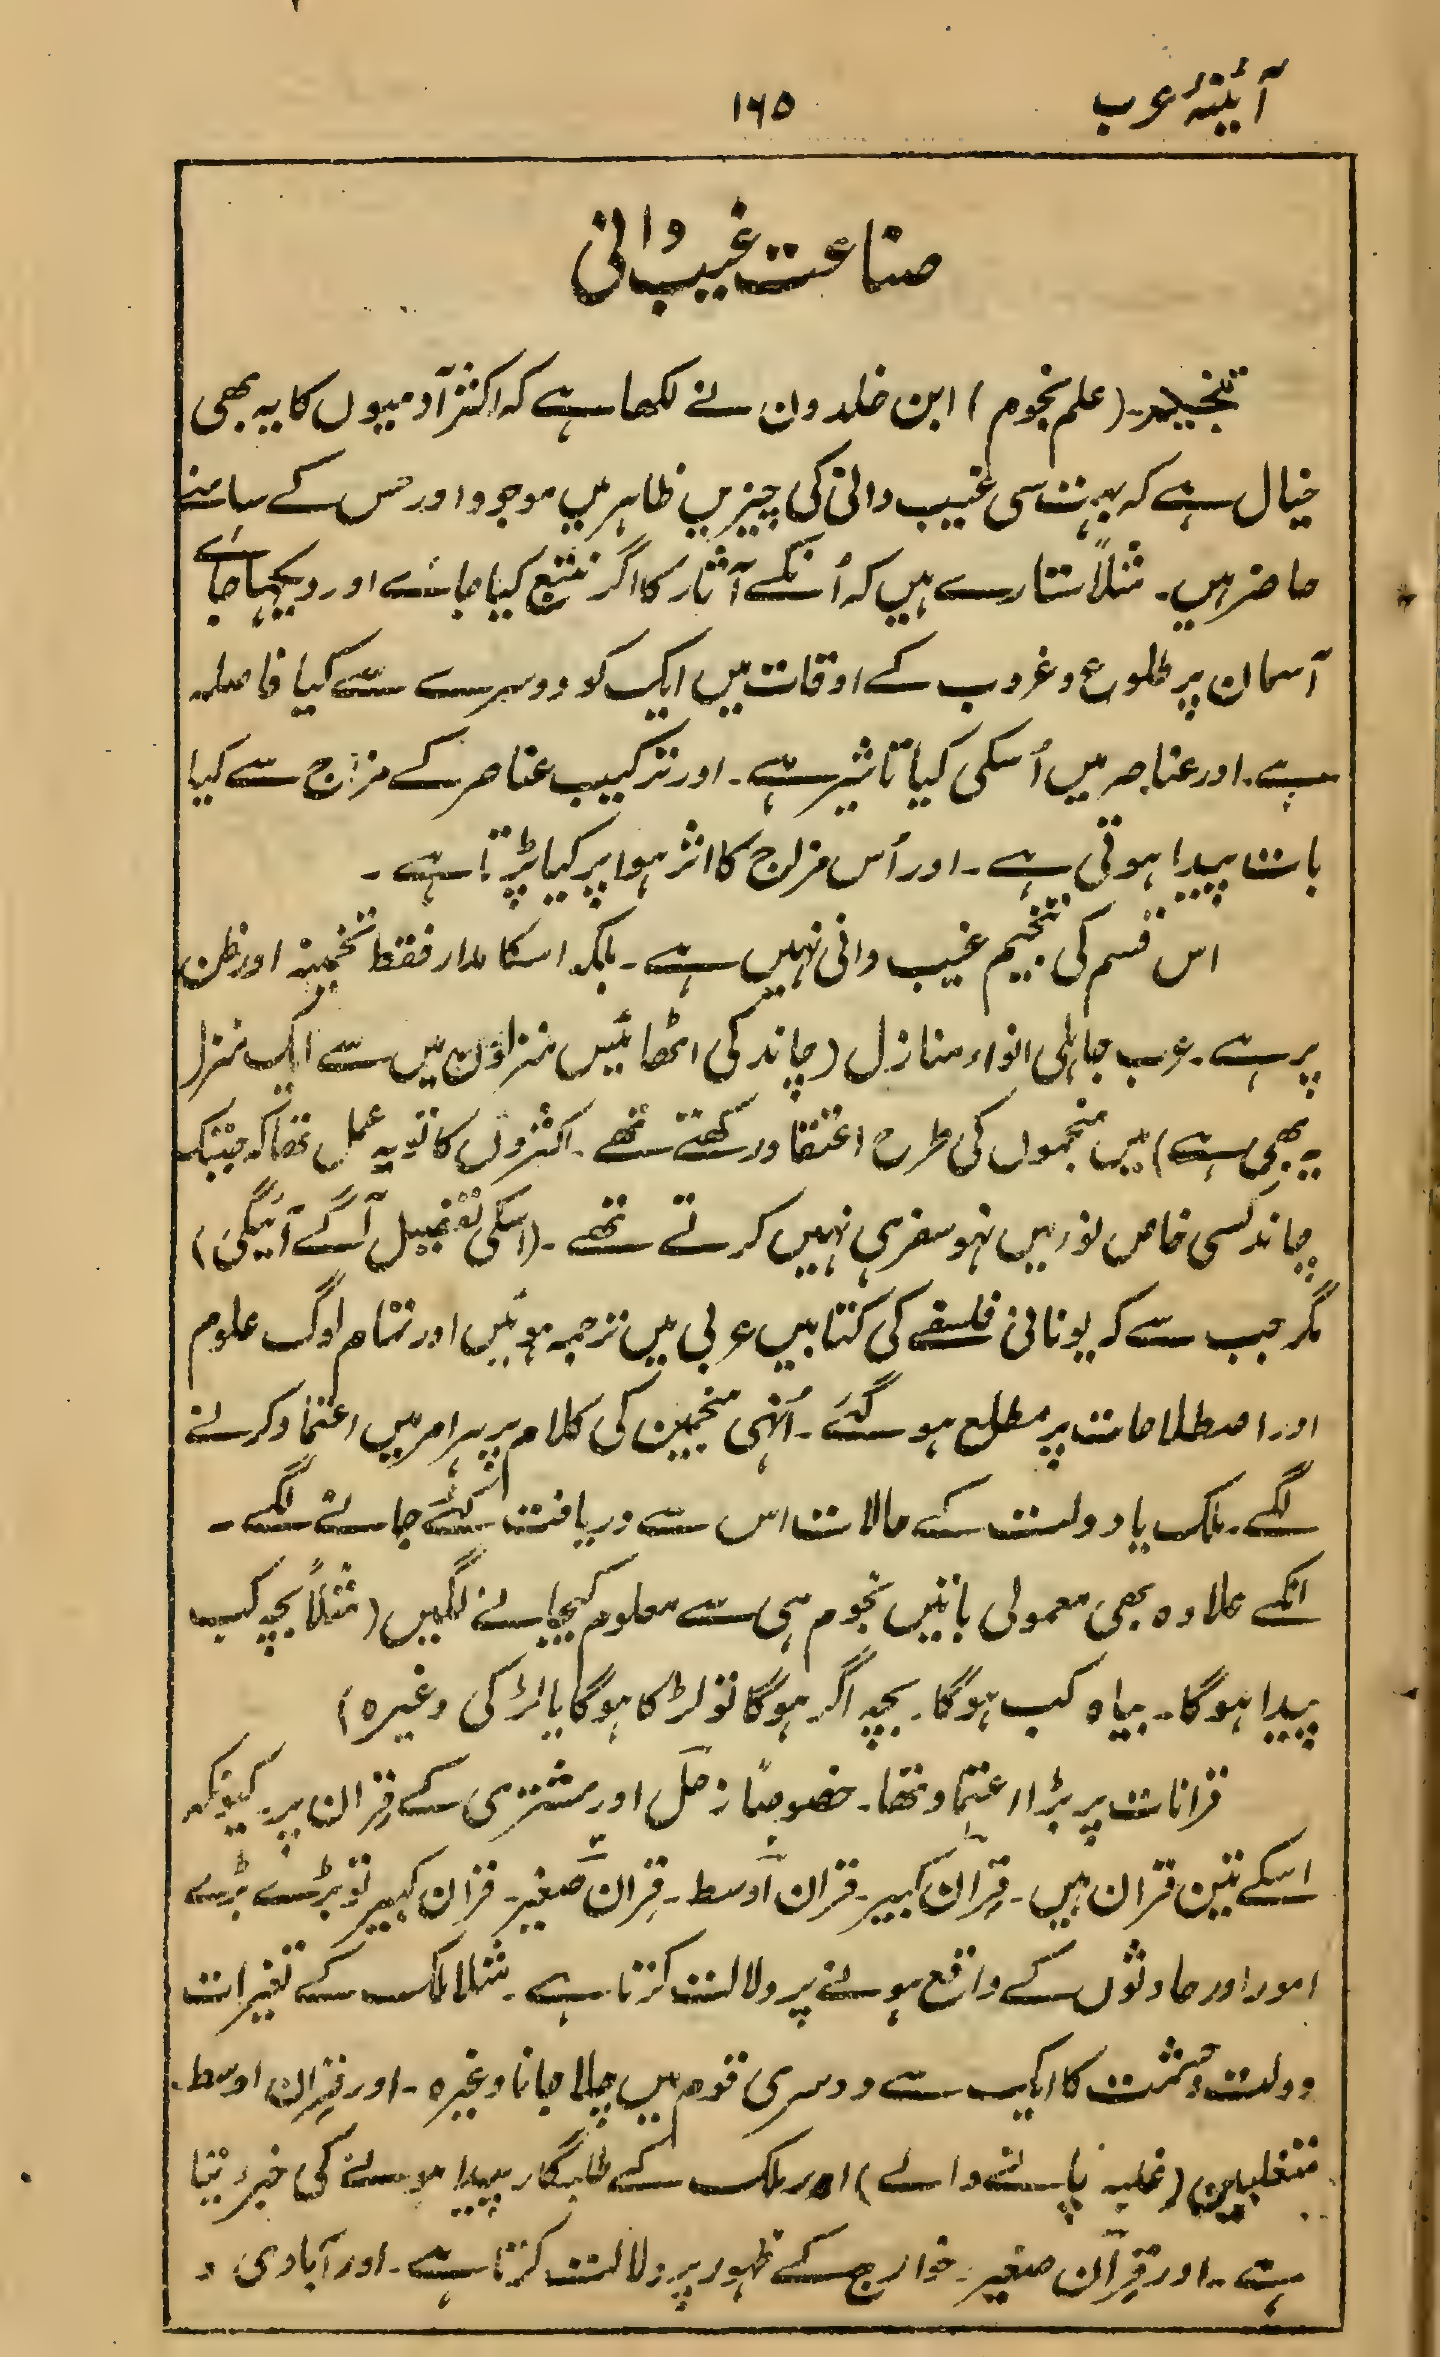 آئینۂ عرب
۱۶۵
صناعت غیب دانی
تنجیم۔ (علم نجوم) ابن خلدون نے لکھا ہے کہ اکثر آدمیوں کا یہ بھی
خیال ہے کہ بہت سی غیب دانی کی چیزیں ظاہر میں موجود اور حس کے سامنے
حاضر ہیں۔ مثلاً ستارے ہیں کہ اُنکے آثار کا اگر تتبع کیا جائے اور دیکھا جائے
آسمان پر طلوع و غروب کے اوقات میں ایک کو دوسرے سے کیا فاصلہ
ہے۔ اور عناصر میں اُسکی کیا تاثیر ہے۔ اور ترکیب عناصر کے مزاج سے کیا
بات پیدا ہوتی ہے۔ اور اُس مزاج کا اثر ہوا پر کیا پڑتا ہے۔
اس قسم کی تنجیم غیب دانی نہیں ہے۔ بلکہ اسکا مدار فقط تخمینہ اور ظن
پر ہے۔ عرب جاہلی انواء منازل (چاند کی اٹھائیس منزلوں میں سے ایک منزل
یہ بھی ہے) میں منجموں کی طرح اعتقاد رکھتے تھے۔ اکثروں کا تو یہ عمل تھا کہ جبتک
چاند کسی خاص نور میں نہو سفر ہی نہیں کرتے تھے۔ (اسکی تفصیل آگے آئیگی)
مگر جب سے کہ یونانی فلسفے کی کتابیں عربی میں ترجمہ ہوئیں اور تمام لوگ علوم
اور اصطلاحات پر مطلع ہو گئے۔ اُنہی منجمین کی کلام پر ہر امر میں اعتماد کرنے
لگے۔ ملک یا دولت کے حالات اس سے دریافت کئے جانے لگے۔
انکے علاوہ بھی معمولی باتیں نجوم ہی سے معلوم کیجانے لگیں (مثلاً بچہ کب
پیدا ہوگا۔ بیاہ کب ہوگا۔ بچہ اگر ہوگا تو لڑکا ہوگا یا لڑکی وغیرہ)
قرانات پر بڑا اعتماد تھا۔ خصوصاً زحل اور مشتری کے قِران پر۔ کیونکہ
اسکے تین قران ہیں۔ قِران کبیر۔ قران اوسط۔ قِران صغیر۔ قران کبیر تو بڑے بڑے
امور اور حادثوں کے واقع ہونے پر دلالت کرتا ہے۔ مثلا ملک کے تغیرات
دولت و حشمت کا ایک سے دوسری قوم میں چلا جانا وغیرہ۔ اور قِران اوسط
متغلبین (غلبہ پانے والے) اور ملک کے طلبگار پیدا ہونے کی خبر دیتا
ہے۔ اور قِران صغیر۔ خوارج کے ظہور پر دلالت کرتا ہے۔ اور آبادی و